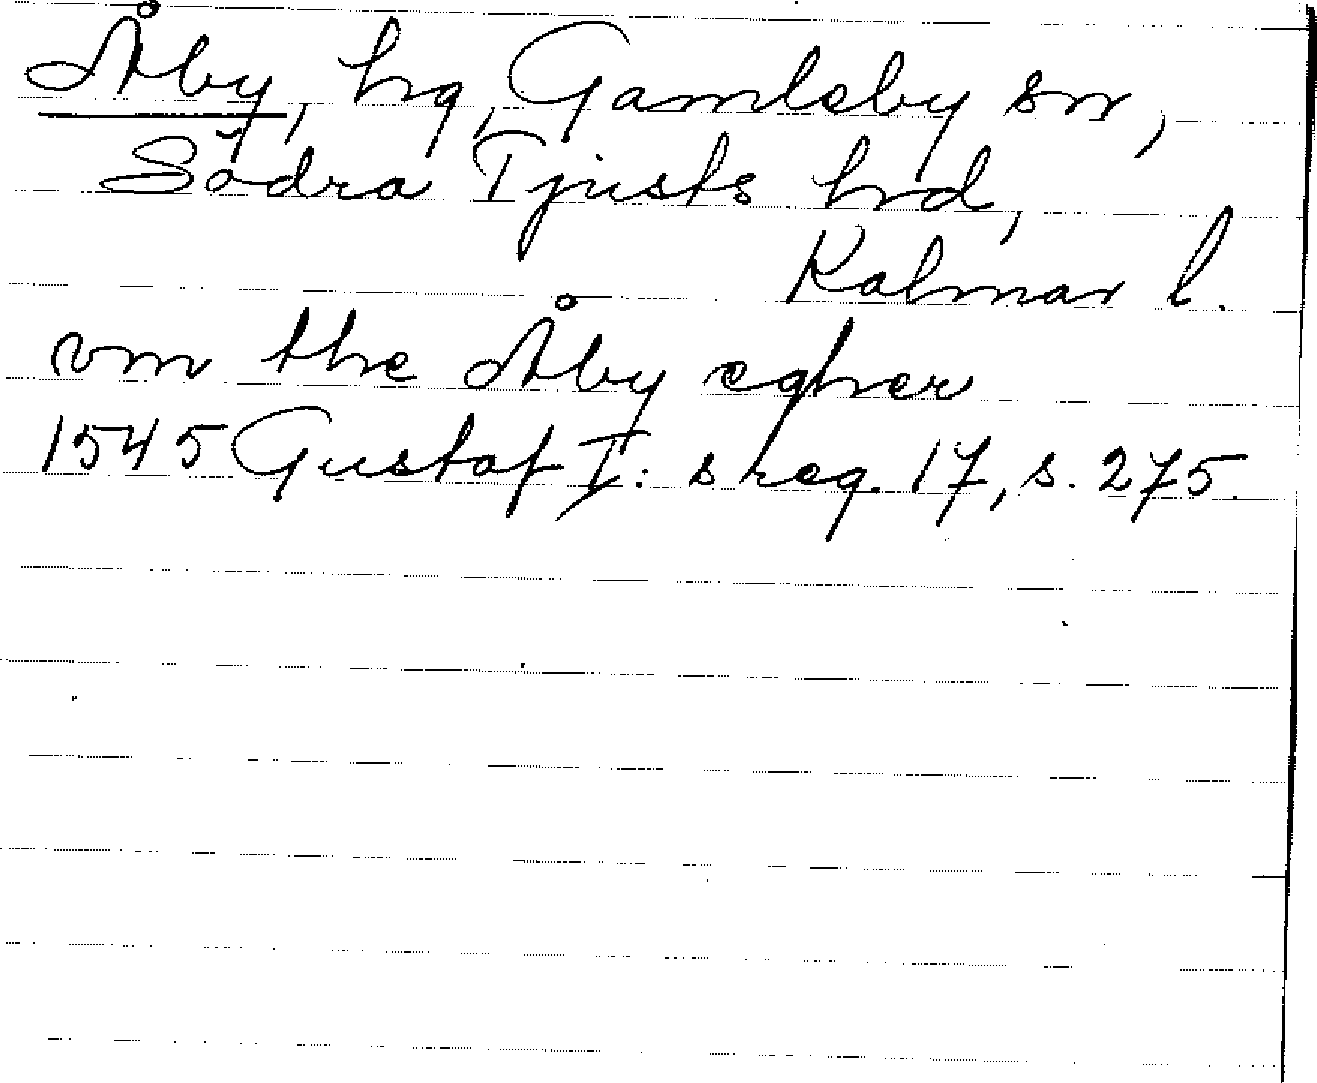 Åby, hg, Gamleby sn,
Södra Tjusts hrd,
Kalmar l.
vm the Åby egher
1545 Gustaf I: s reg. 17, s. 275.